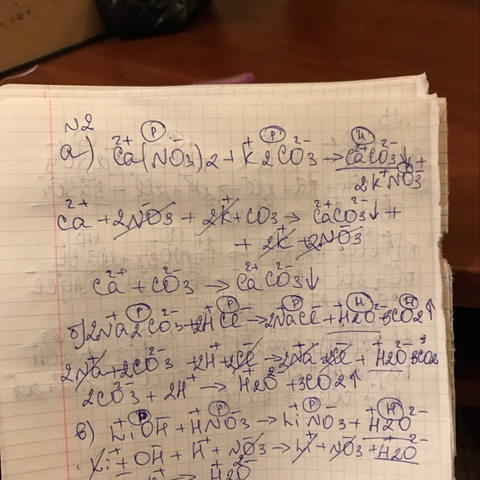 №2
а) Ca²⁺(NO₃⁻)2 + K⁺2CO₃²⁻ → Ca²⁺CO₃²⁻↓ +
2K⁺NO₃⁻
Ca²⁺ + 2NO₃⁻ + 2K⁺ + CO₃²⁻ → Ca²⁺CO₃²⁻↓ +
+ 2K⁺ + 2NO₃⁻
Ca²⁺ + CO₃²⁻ → Ca²⁺CO₃²⁻↓
б) 2Na⁺2CO₃²⁻ + 2H⁺Cl⁻ → 2Na⁺Cl⁻ + H⁺2O²⁻ + 3CO2↑
2Na⁺ + 2CO₃²⁻ 2H⁺ + 2Cl⁻ → 2Na⁺ 2Cl⁻ + H⁺2O²⁻ 3CO2
2CO₃²⁻ + 2H⁺ → H⁺2O²⁻ + 3CO2↑
в) Li⁺OH⁻ + H⁺NO₃⁻ → Li⁺NO₃⁻ + H⁺2O²⁻
Li⁺ + OH⁻ + H⁺ + NO₃⁻ → Li⁺ + NO₃⁻ + H⁺2O²⁻
→ H⁺2O²⁻